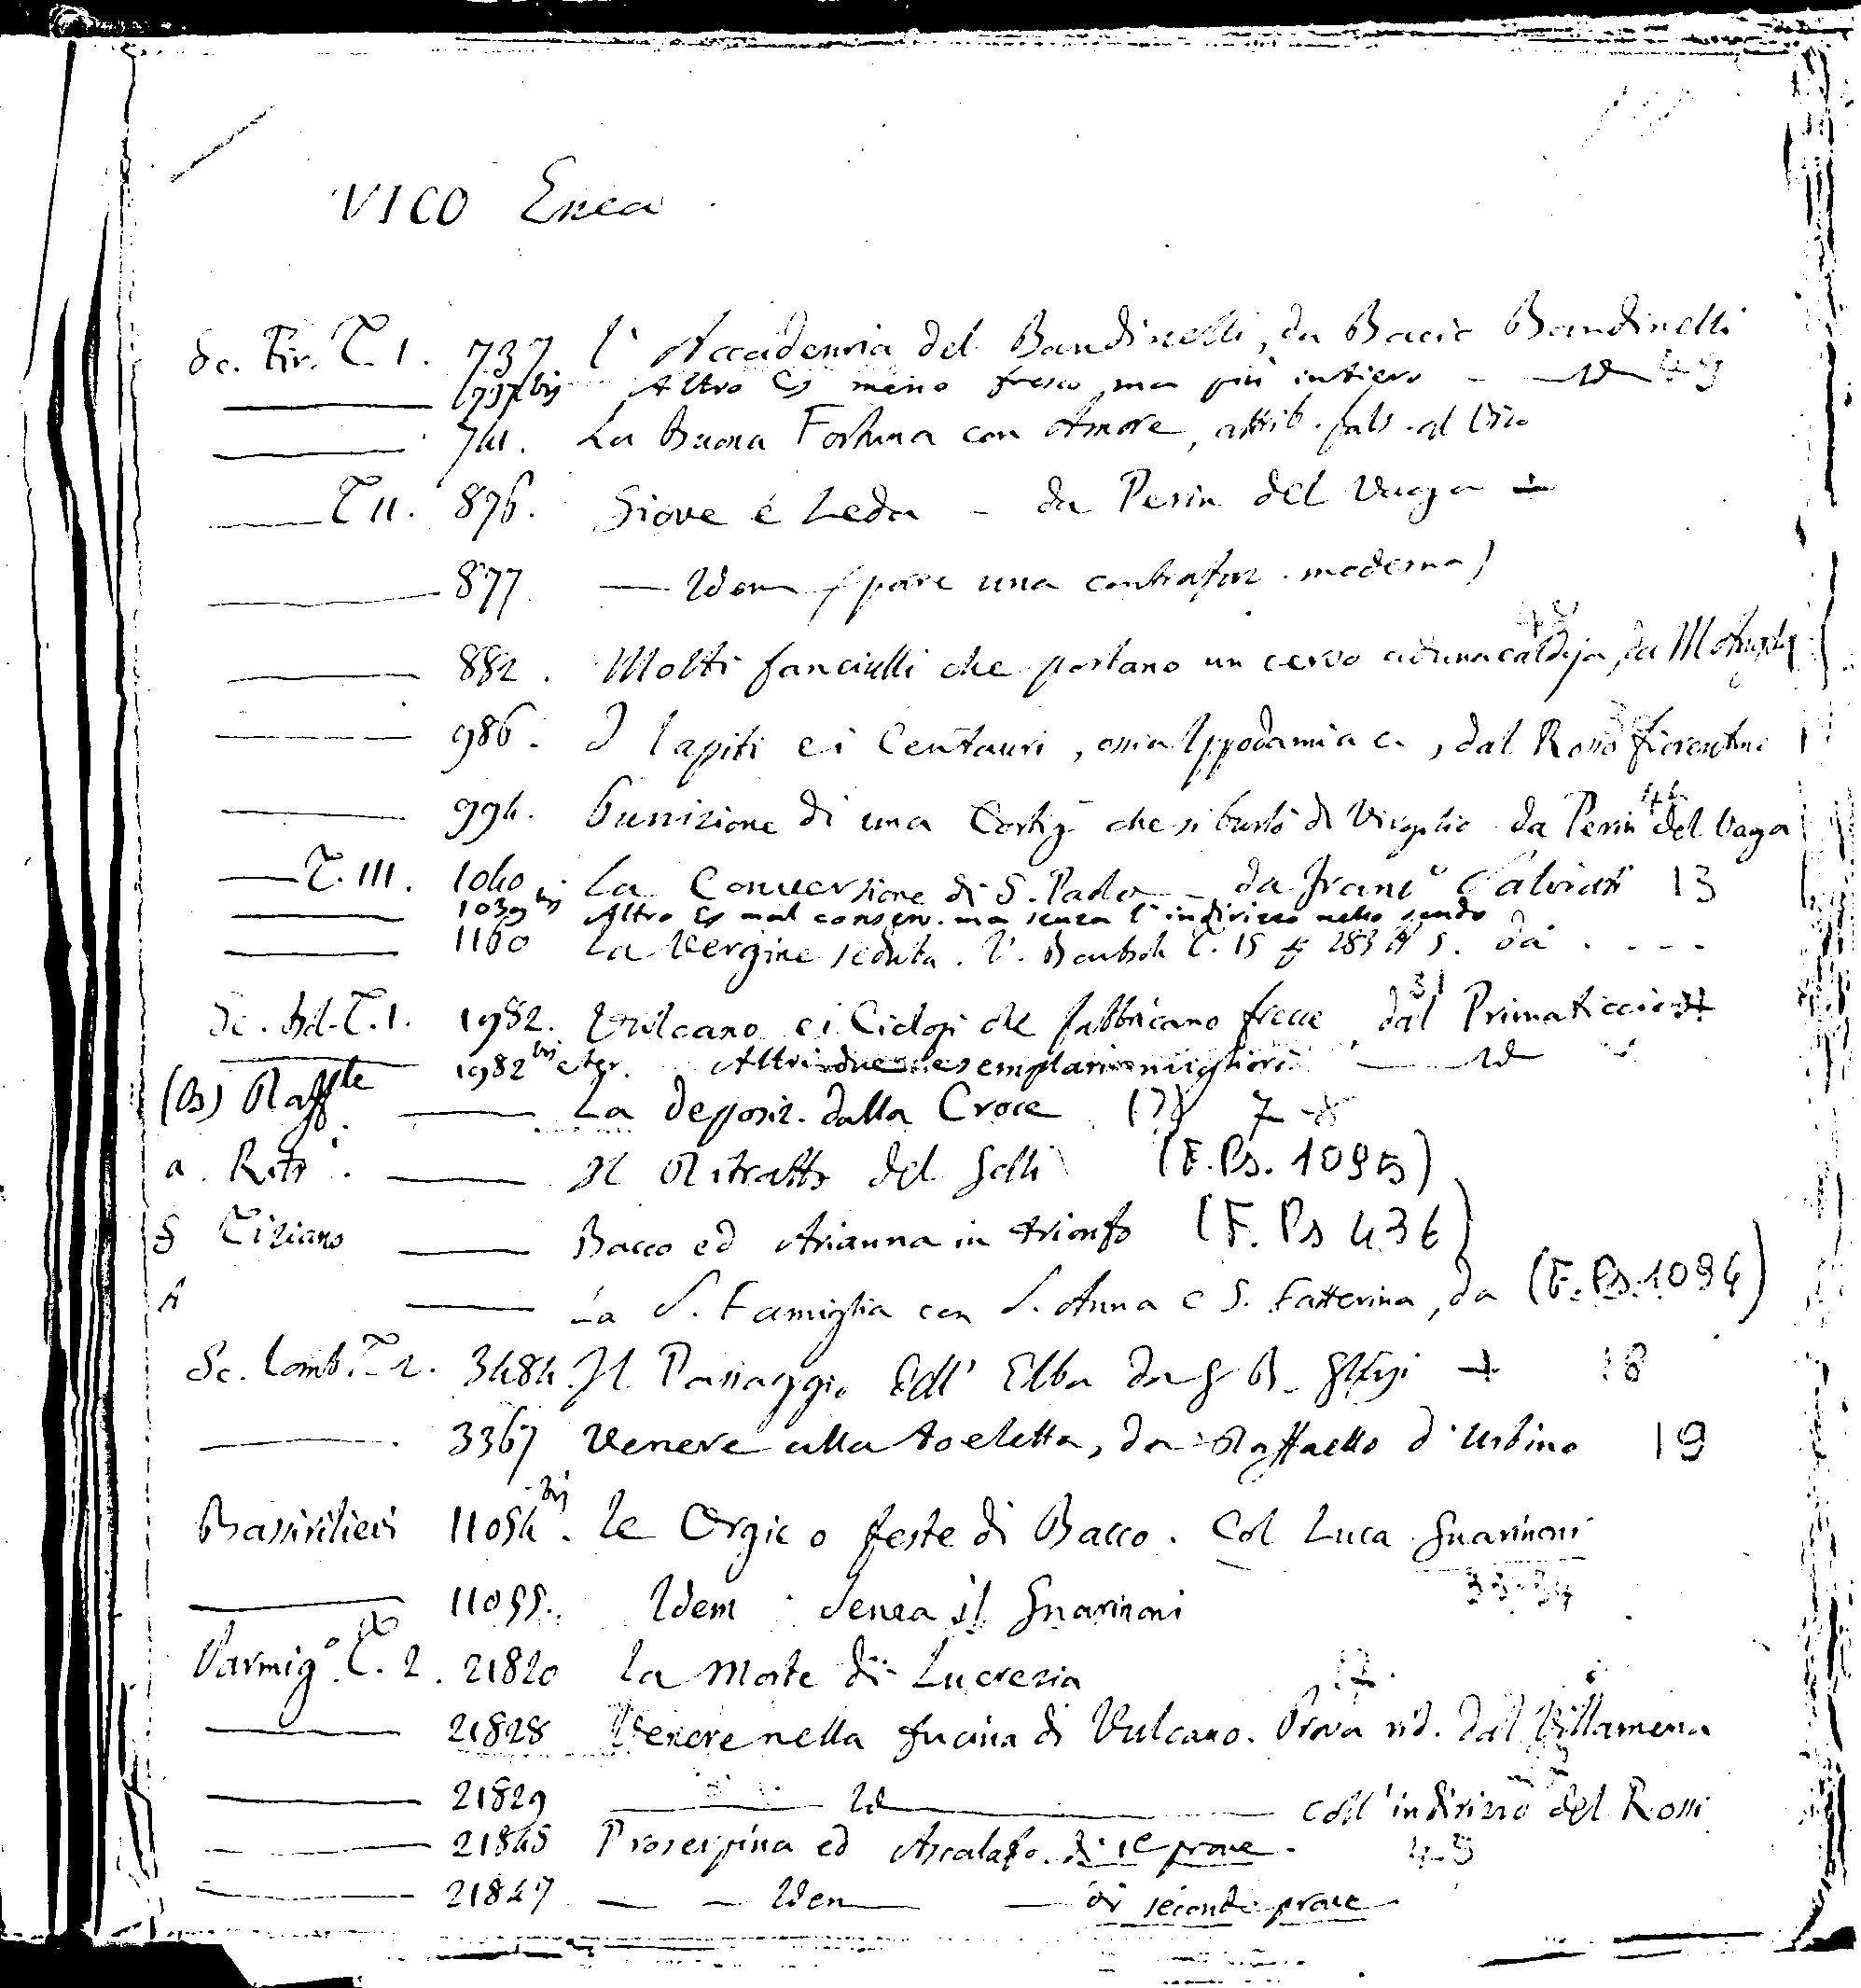 VICO Enea
Sc. Fir. T. I. 737 L'Accademia del Bandinelli, da Bacio Bandinelli
737 bis Altro Es meno fresco, ma più intiero - Id 49
741. La Buona Fortuna con Amore, attrib. fals. al Vico
T II. 876. Giove e Leda - da Perin del Vaga
877 Idem (pare una contrafaz. moderna)
882. Molti fanciulli che portano un cervo ad una caldaja, da M Angelo
986. I Lapiti e i Centauri, ossia Ippodamia ec, dal Rosso fiorentino
994. Punizione di una Cortig che si burlò di Virgilio da Perin del Vaga
T. III. 1040 La Conversione di S. Paolo - da Franc.o Salviati 13
1039 bis Altro Es mal conserv. ma senza l'indirizzo nello scudo
1160 La Vergine seduta. V. Bartsch T. 15 283 N 5. da . . . .
Sc. Bol. T. 1. 1982. Vulcano e i Ciclopi che fabbricano frecce dal Primaticcio 31
1982 bis e ter. Altri due esemplari migliori Id
(B) Raffle La deposiz. dalla Croce (?) 7-8
a. Rit.i Il Ritratto del Gelli (F. Ps. 1095)
Tiziano Bacco ed Arianna in trionfo (F. Ps 436)
La S. Famiglia con S. Anna e S. Catterina, da (F. Ps. 1094)
Sc. Lomb. T. 2. 3484 Il Passaggio dell' Elba da G B. Ghisi 18
3367 Venere alla toeletta, da Raffaello d'Urbino 19
Bassirilievi 11054 bis. Le Orgie o feste di Bacco. Col Luca Guarinoni
11055. Idem senza il Guarinoni 33-34
Parmig.o T. 2. 21820 La Morte di Lucrezia 17
21828 Venere nella fucina di Vulcano. Prova rid. dal Villamena
21829 Id coll'indirizzo del Rossi
21845 Proserpina ed Ascalafo. di 1e prove. 45
21847 Idem di seconde prove